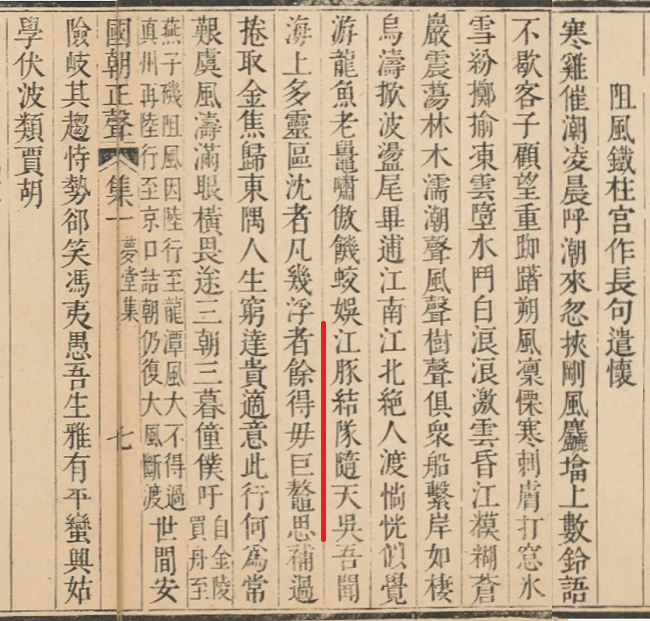 阻風鐵柱宮作長句遣懷
寒雞催潮凌晨呼潮來忽挾剛風麤墖上數鈴語
不歇客子顧望重踟躇朔風凛慄寒刺膚打窓氷
雪紛擲揄凍雲墮水門白浪浪激雲昏江模糊蒼
嚴震蕩林木濡潮聲風聲樹聲俱衆船繫岸如棲
烏濤掀波盪尾畢逋江南江北絶人渡惝恍似覺
游龍魚老鼉嘯傲饑蛟娛江豚結隊隨天吳吾聞
海上多靈區沈者凡幾浮者餘得毋巨鰲思補過
捲取金焦歸東隅人生窮達貴適意此行何爲常
艱虞風濤滿眼橫畏途三朝三暮僮僕吁自金陵買舟至
燕子磯阻風因陸行至龍潭風大不得過真州再陸行至京口詰朝仍復大風斷渡世間安
國朝正聲 集一 夢堂集 七
險岐其趨恃勢郤笑馮夷愚吾生雅有平蠻興姑
學伏波類賈胡